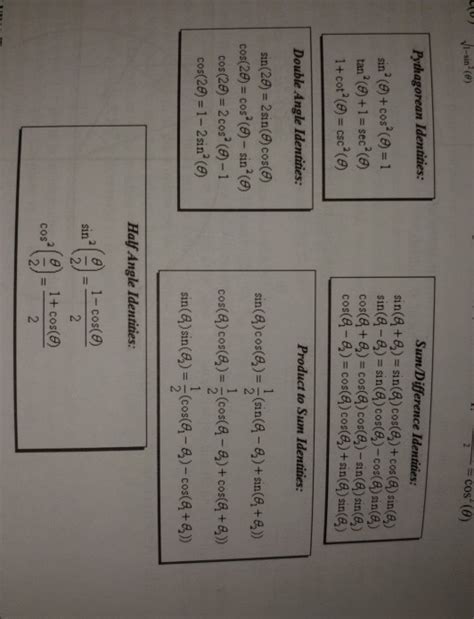 √1-sin²(θ)
= cos²(θ)
2
Pythagorean Identities:
sin²(θ)+cos²(θ)=1
tan²(θ)+1=sec²(θ)
1+cot²(θ)=csc²(θ)
Sum/Difference Identities:
sin(θ₁+θ₂)=sin(θ₁)cos(θ₂)+cos(θ₁)sin(θ₂)
sin(θ₁-θ₂)=sin(θ₁)cos(θ₂)-cos(θ₁)sin(θ₂)
cos(θ₁+θ₂)=cos(θ₁)cos(θ₂)-sin(θ₁)sin(θ₂)
cos(θ₁-θ₂)=cos(θ₁)cos(θ₂)+sin(θ₁)sin(θ₂)
Double Angle Identities:
sin(2θ)=2sin(θ)cos(θ)
cos(2θ)=cos²(θ)-sin²(θ)
cos(2θ)=2cos²(θ)-1
cos(2θ)=1-2sin²(θ)
Product to Sum Identities:
sin(θ₁)cos(θ₂)=1/2(sin(θ₁-θ₂)+sin(θ₁+θ₂))
cos(θ₁)cos(θ₂)=1/2(cos(θ₁-θ₂)+cos(θ₁+θ₂))
sin(θ₁)sin(θ₂)=1/2(cos(θ₁-θ₂)-cos(θ₁+θ₂))
Half Angle Identities:
sin²(θ/2)=1-cos(θ)/2
cos²(θ/2)=1+cos(θ)/2